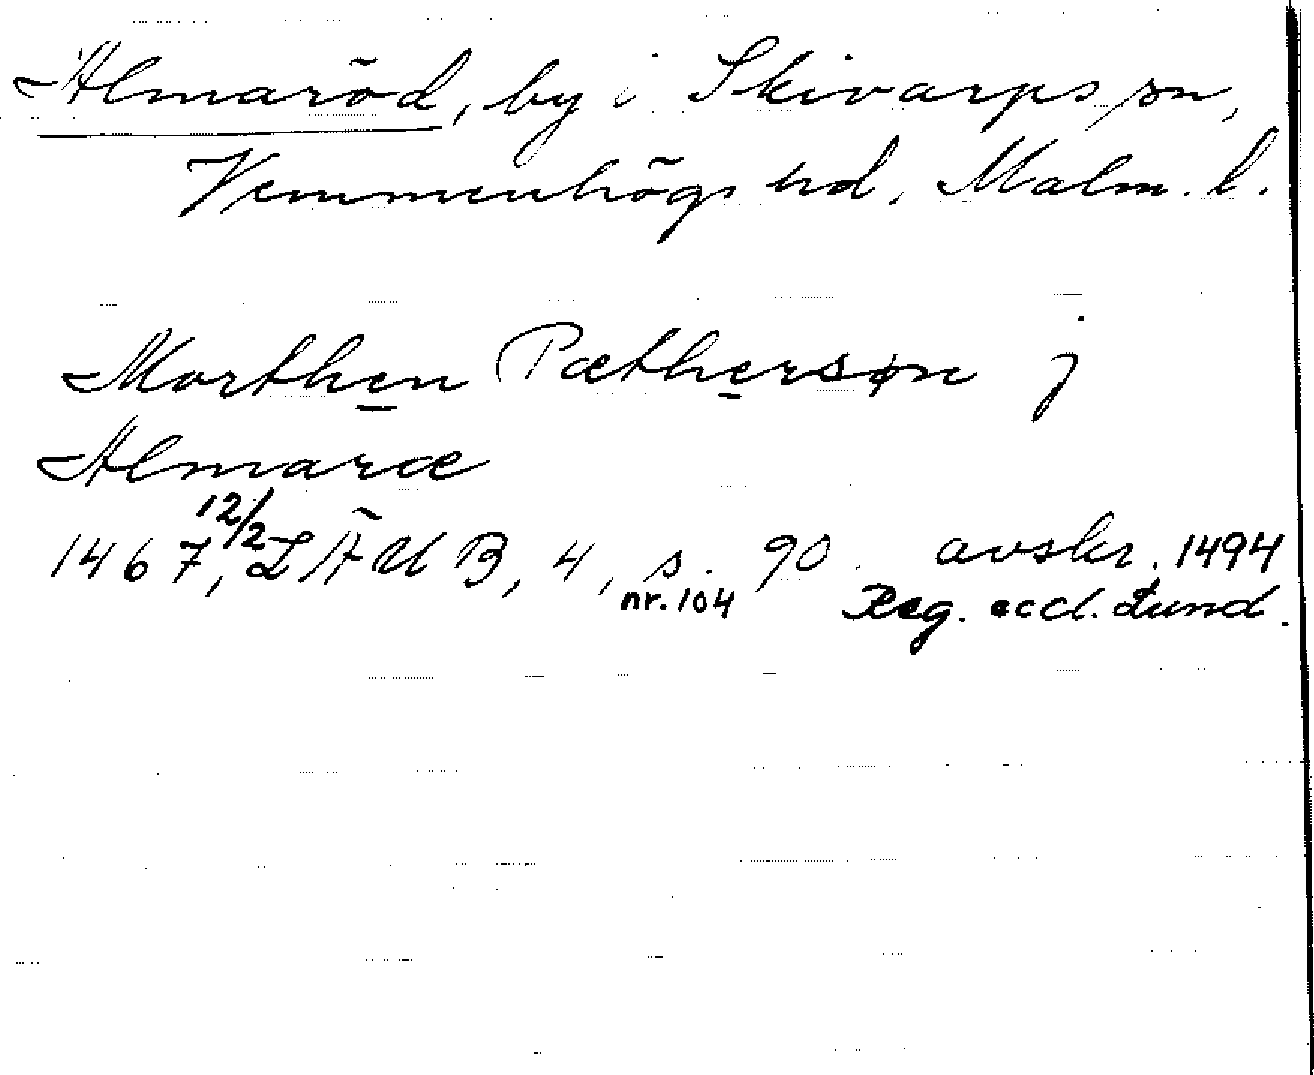 Almaröd, by i Skivarps sn,
Vemmenhögs hd, Malm. l.
Morthen Pæthersøn j
Almaræ
1467 12/2, LÄUB, 4, s. 90. avskr. 1494
nr. 104 Reg. eccl. Lund.